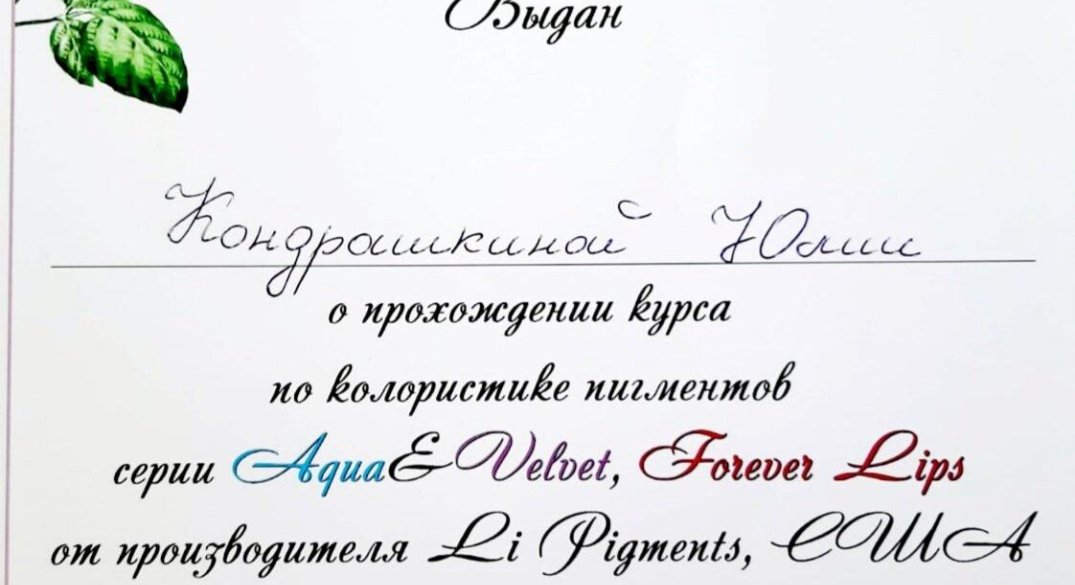 Выдан
Кондрашкиной Юлии
о прохождении курса
по колористике пигментов
серии Aqua&Velvet, Forever Lips
от производителя Li Pigments, США